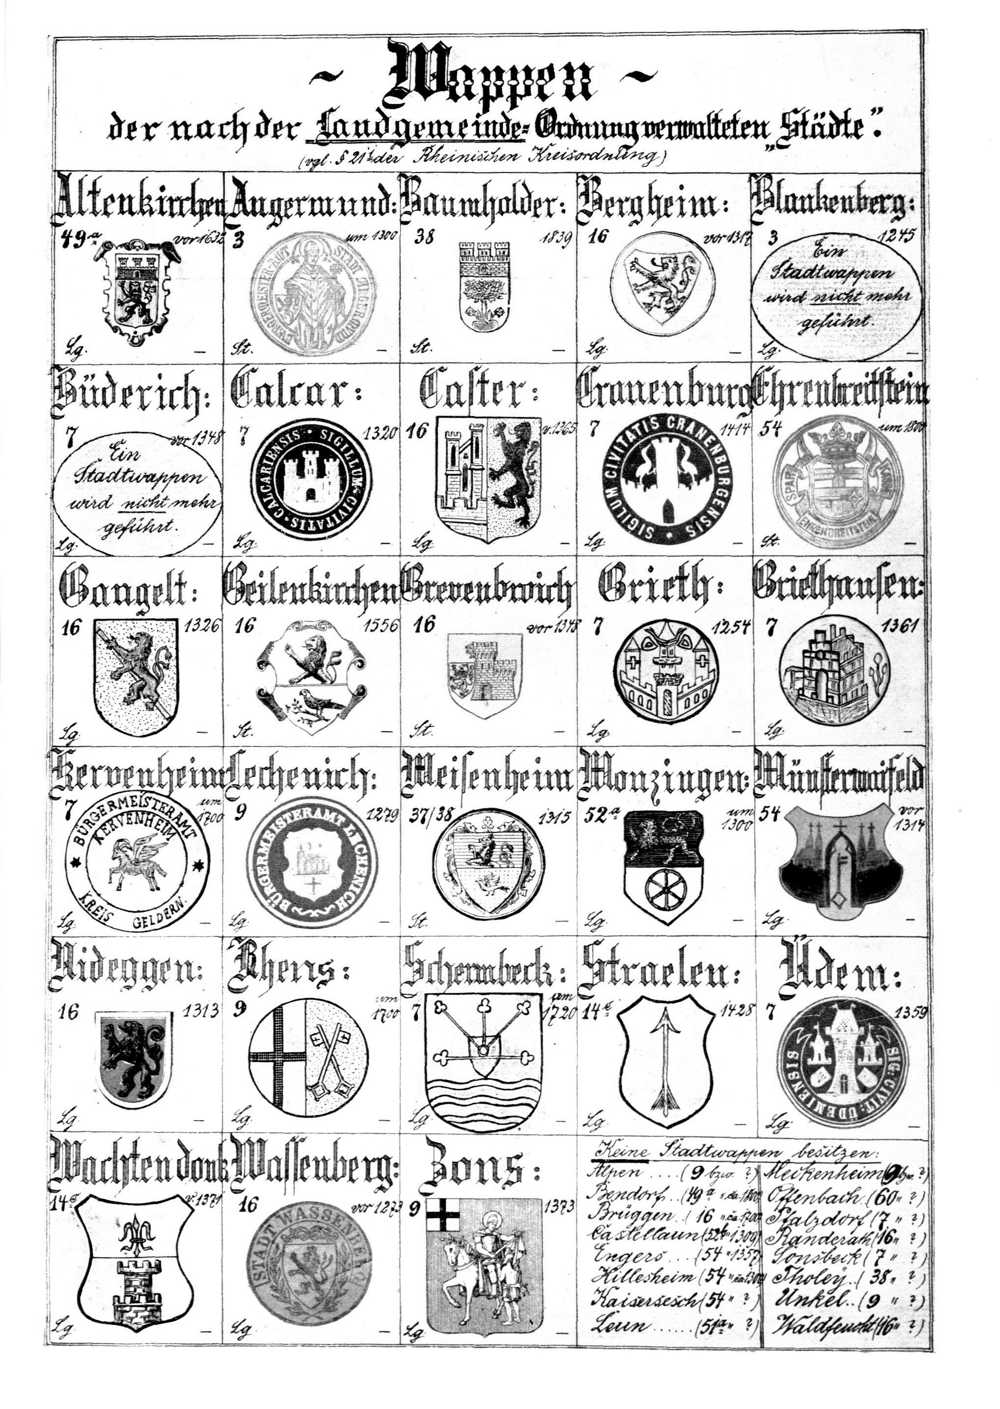 ~ Wappen ~
der nach der Landgemeinde-Ordnung verwalteten „Städte".
(vgl. § 21 der Rheinischen Kreisordnung)
Altenkirchen Angermund: Baumholder: Bergheim: Blankenberg:
49a vor 1632 3 um 1300 38 1839 16 vor 1317 3 1245
Ein
Stadtwappen
wird nicht mehr
geführt.
Lg. — St. — St. — Lg. — Lg. —
Büderich: Calcar: Caster: Cranenburg Ehrenbreitstein
7 vor 1348 7 1320 16 1414 54 um 1800
7
Ein
Stadtwappen
wird nicht mehr
geführt.
SIGILLUM CIVITATIS CALCARIENSIS
SIGILUM CIVITATIS CRANENBURGENSIS
Lg. — Lg. — Lg. — Lg. — St. —
Gangelt: Geilenkirchen Grevenbroich Grieth: Griethausen:
16 1326 16 1556 16 vor 1318 7 1254 7 1361
Lg. — St. — St. — Lg. — Lg. —
Kervenheim Lechenich: Meisenheim Monzingen: Münstermaifeld
7 um 1700 9 1279 37/38 1315 52a um 1300 54 vor 1314
BÜRGERMEISTERAMT
KERVENHEIM
KREIS GELDERN.
BÜRGERMEISTERAMT LECHENICH
Lg. — Lg. — St. — Lg. — Lg. —
Nideggen: Rhens: Schermbeck: Straelen: Üdem:
16 1313 9 um 1700 7 um 1720 14e 1428 7 1359
SIG: CIVIT: UDENIENSIS
Lg. — Lg. — Lg. — Lg. — Lg. —
Wachtendonk Wassenberg: Zons:
14e v. 1371 16 vor 1273 9 1373
STADT WASSENBERG
Lg — Lg. — Lg —
Keine Stadtwappen besitzen:
Alpen .... (9 bzw. ?) Meckenheim (9 bzw. ?)
Bendorf.. (49a Offenbach (60 " ?)
Brüggen.. (16 Pfalzdorf (7 " ?)
Castellaun Randerath (16 " ?)
Engers... (54 " 1357) Sonsbeck (7 " ?)
Hillesheim (54 Tholey.. (38 " ?)
Kaisersesch (54 " ?) Unkel.. (9 " ?)
Leun ...... ?) Waldfeucht (16 " ?)